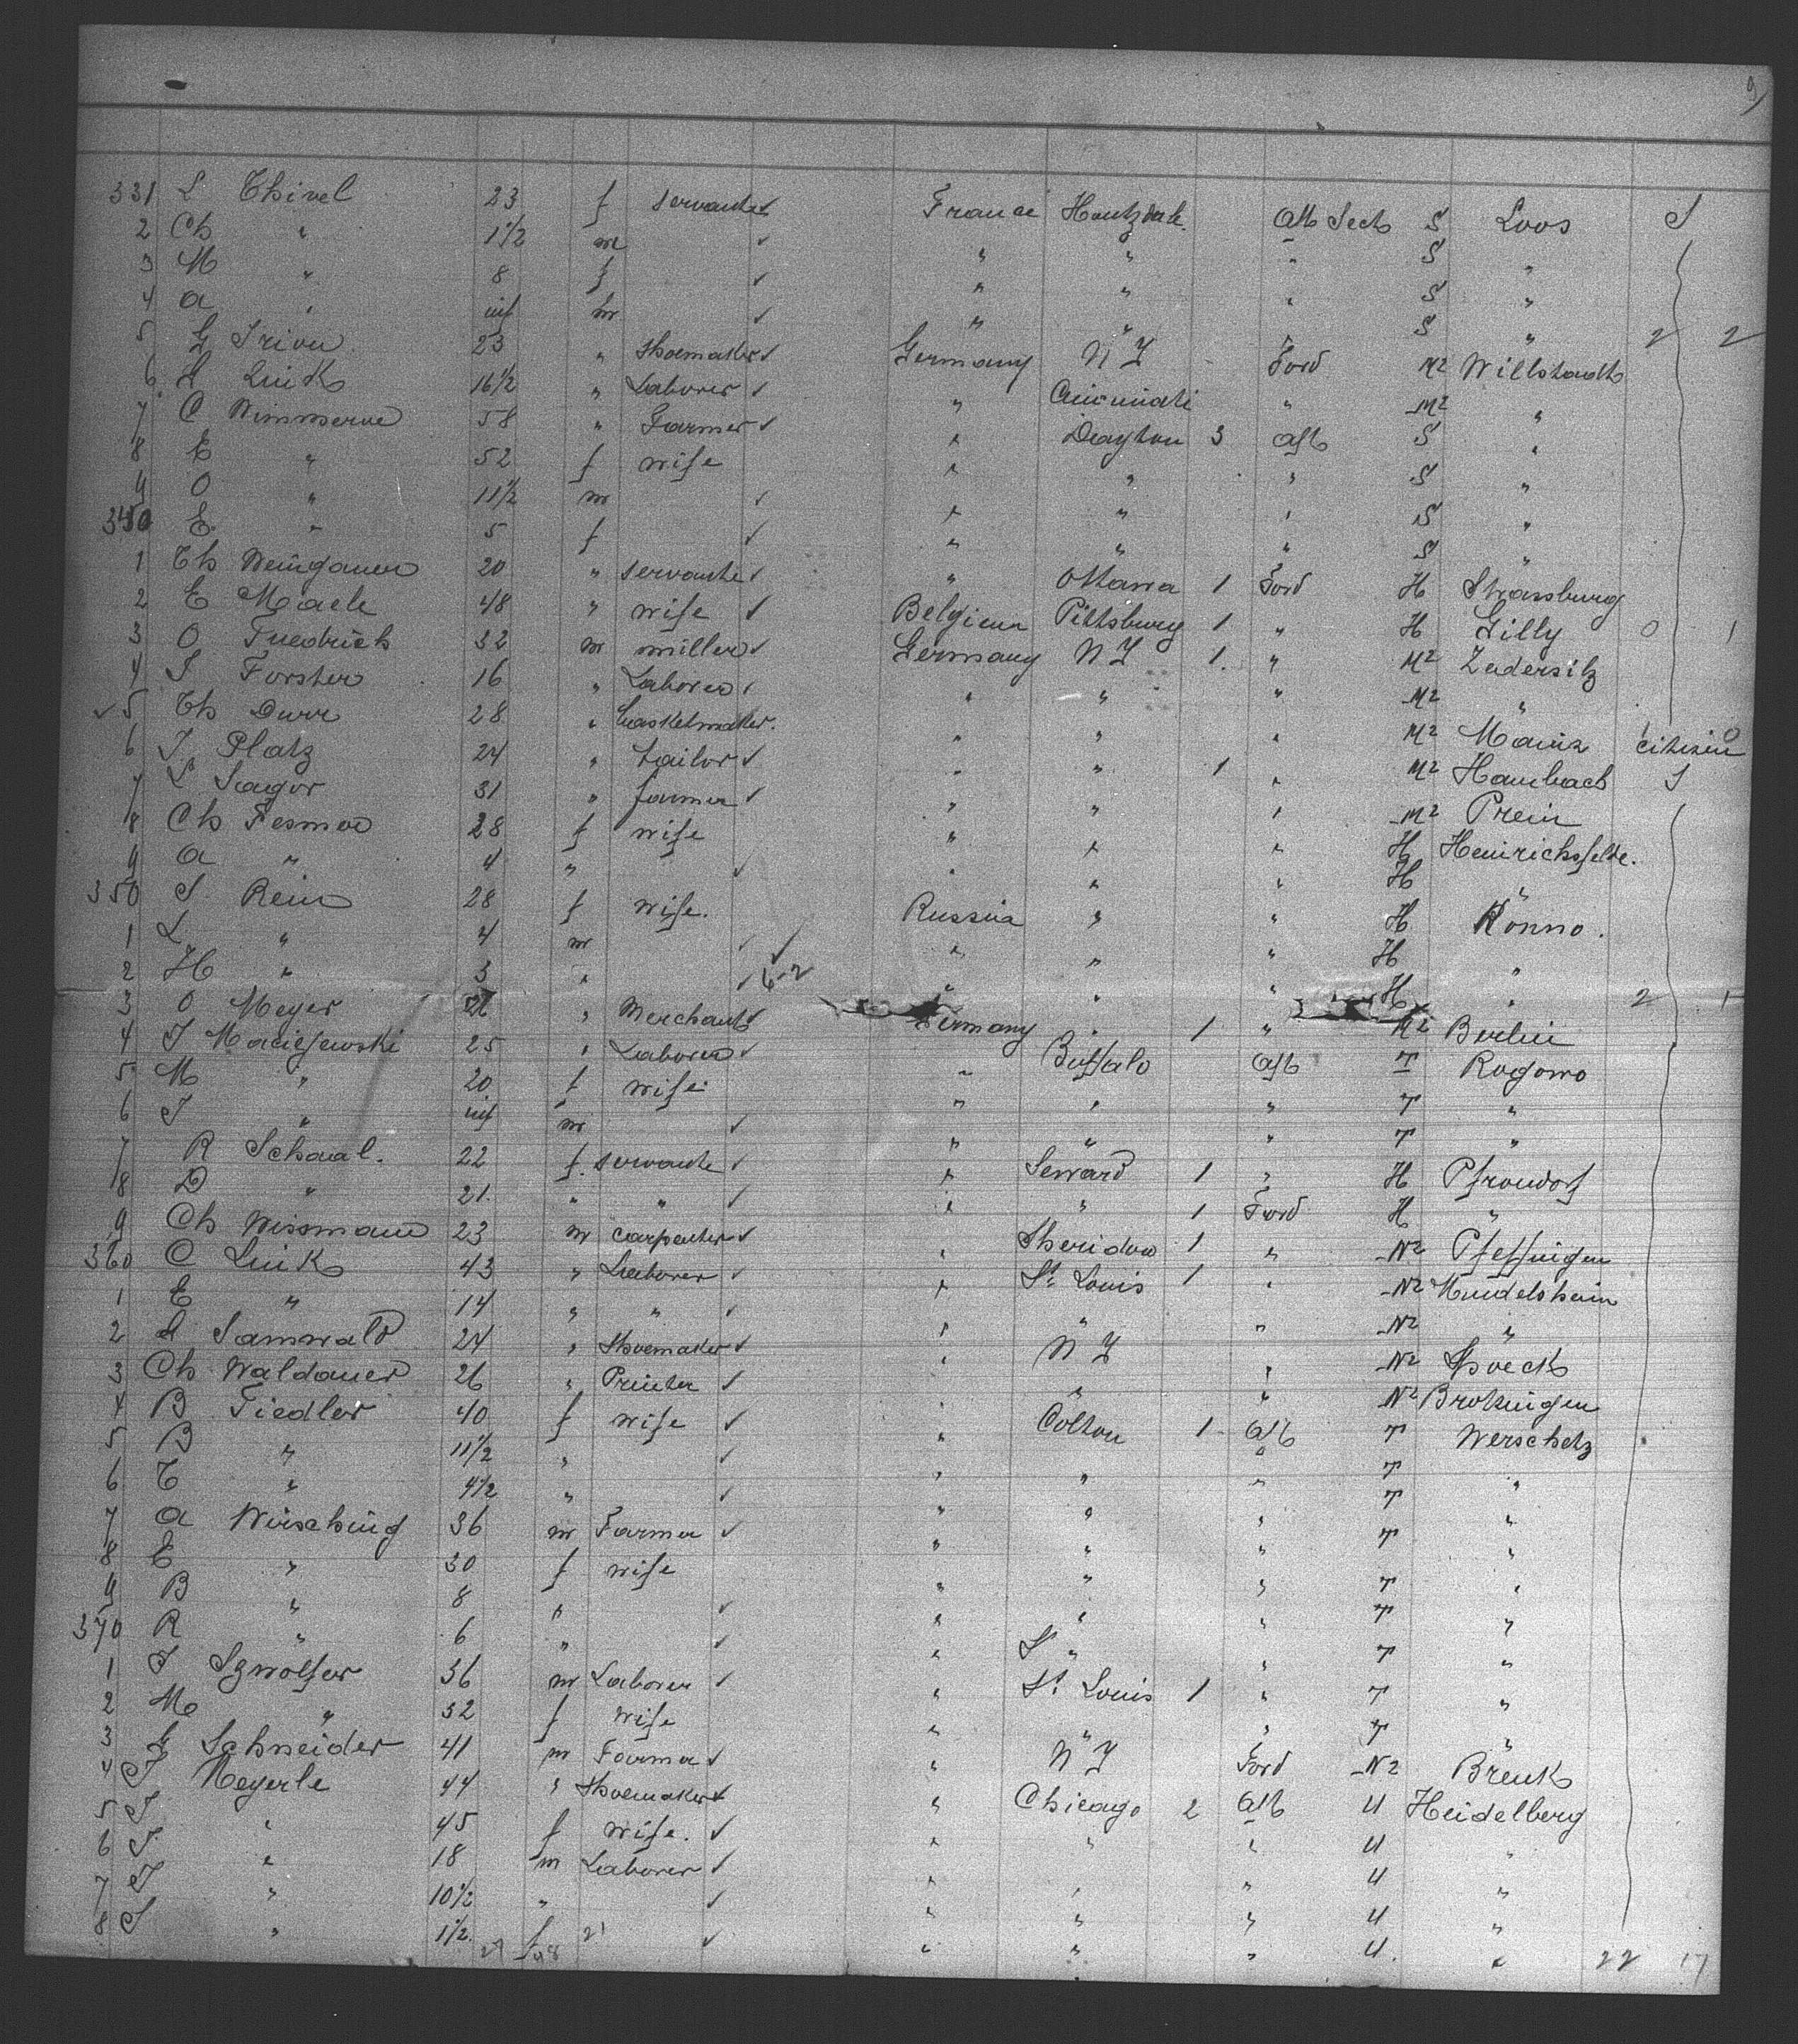 9
331 L Thivel 23 f servante France Houtzdale Aft Sects S Loos S
2 Ch " 1 1/2 m " " " S "
3 M " 8 f " " " S "
4 a " inf m " " " S " 2 2
5 G 23 " shoemaker Germany N Y Ford M2 Willstadt
6 Link 16 1/2 " Laborer " " M2 "
7 C 58 " Farmer " Dayton 3 aft S "
8 E " 52 f wife " " " S "
9 O " 11 1/2 m " " " S "
340 E " 5 f " " " S "
1 Th Weingauer 20 " servante " Ottawa 1 Ford H Strassburg
2 E 48 " wife Belgium Pittsburg 1 " H Gilly 0 1
3 O Friedrich 32 m miller Germany N Y 1 " M2
4 J Forster 16 " Laborer " " " M2 "
5 Th Durr 28 " " " " M2 Mainz citizen 0
6 J Platz 24 " tailor " " 1 " M2 Hambach S
7 L Sagor 31 " farmer " " " M2 Prein
8 Ch 28 f wife " " " H Heinrichsfelde.
9 a " 4 " " " " H "
350 S Rein 28 f wife. Russia " " H Ronno.
1 L " 4 m " " " H "
2 H " 3 " 6-2 " " " H " 2 1
3 O Meyer " Merchant Germany " 1 " M2 Berlin
4 J Maciejewski 25 " Laborer " Buffalo aft T Rogowo
5 M " 20 f wife " " " T "
6 J " inf m " " " T "
7 R Schaal. 22 f. servante " Seward 1 " H Pfrondorf
8 D " 21. " " " " 1 Ford H "
9 Ch Wissmann 23 m carpenter " Sheridan 1 " N2 Pfeffingen
360 C Link 43 " Laborer " St. Louis 1 " N2 Mundelsheim
1 E " 14 " " " " " N2 "
2 Samwald 24 " Shoemaker " N Y " N2 Spoeck
3 Ch Waldauer 26 " Printer " " " N2 Brotzingen
4 B Fiedler 40 f wife " Colton 1 aft T Werschetz
5 B " 11 1/2 " " " " T "
6 T " 4 1/2 " " " " T "
7 a Wirsching 36 m Farmer " " " T "
8 E " 30 f wife " " " T "
9 B " 8 " " " " T "
370 R " 6 " " " " T "
1 J 36 m Laborer " St Louis 1 " T "
2 M " 32 f wife " " " T "
3 G Schneider 41 m Farmer " N Y Ford N2 Brenk
4 J Meyerle 44 " Shoemaker " Chicago 2 aft U Heidelberg
5 J " 45 f wife. " " " U "
6 J. " 18 m Laborer " " " U "
7 J " 10 1/2 " " " " U "
8 S " 1 1/2. f " " " U. "
27 21 22 17